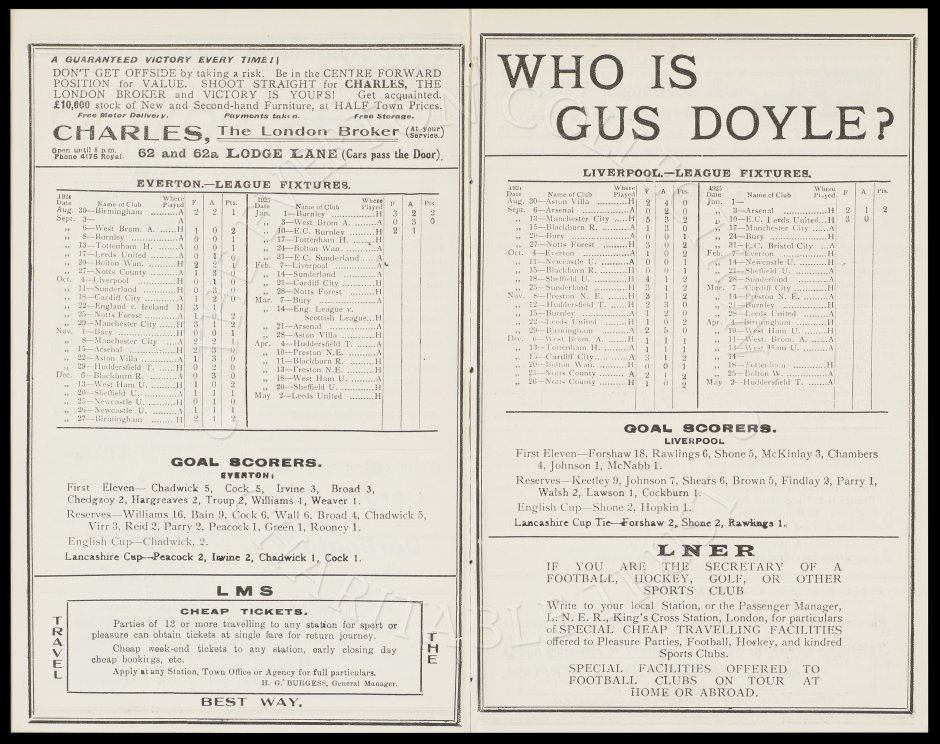 A GUARANTEED VICTORY EVERY TIME!!
DON'T GET OFFSIDE by taking a risk. Be in the CENTRE FORWARD
POSITION for VALUE. SHOOT STRAIGHT for CHARLES, THE
LONDON BROKER and VICTORY IS YOURS! Get acquainted.
£10,000 stock of New and Second-hand Furniture, at HALF Town Prices.
Free Motor Delivery. Payments taken. Free Storage.
CHARLES, The London Broker (At your Service.)
Open until 8 p.m.
Phone 4175 Royal. 62 and 62a LODGE LANE (Cars pass the Door).
EVERTON.—LEAGUE FIXTURES.
1924
Date Name of Club Where Played F A Pts.
Aug. 30—Birmingham A 2 2 1
Sept. 3— A
„ 6—West Brom. A. H 1 0 2
„ 8—Burnley A 0 0 1
„ 13—Tottenham H. A 0 0 1
„ 17—Leeds United A 0 1 0
„ 20—Bolton Wan. H 2 2 1
„ 27—Notts County A 1 3 0
Oct. 4—Liverpool H 0 1 0
„ 11—Sunderland A 0 3 0
„ 18—Cardiff City H 1 2
„ 22—England v. Ireland H 3 1
„ 25—Notts Forest A 1
„ 29—Manchester City H 3 1 2
Nov. 1—Bury H 0 0 1
„ 8—Manchester City A 2 2 1
„ 15—Arsenal H 2 3 0
„ 22—Aston Villa A 1 3 0
„ 29—Huddersfield T. H 0 2 0
Dec. 6—Blackburn R. A 0 3 0
„ 13—West Ham U. H 1 0 2
„ 20—Sheffield U. A 1 1 1
„ 25—Newcastle U. H 0 1 0
„ 26—Newcastle U. A 1 1 1
„ 27—Birmingham H 2 1 2
1925
Date Name of Club Where Played F A Pts.
Jan. 1—Burnley H 3 2 2
„ 3—West Brom A. A 0 3 0
„ 10—E.C. Burnley H 2 1
„ 17—Tottenham H. H
„ 24—Bolton Wan. A
„ 31—E.C. Sunderland A
Feb. 7—Liverpool A
„ 14—Sunderland H
„ 21—Cardiff City A
„ 28—Notts Forest H
Mar. 7—Bury A
„ 14—Eng. League v.
Scottish League H
„ 21—Arsenal A
„ 28—Aston Villa H
Apr. 4—Huddersfield T. A
„ 10—Preston N.E. A
„ 11—Blackburn R. H
„ 13—Preston N.E. H
„ 18—West Ham U. A
„ 20—Sheffield U. H
May 2—Leeds United H
GOAL SCORERS.
EVERTON:
First Eleven— Chadwick 5, Cock 5, Irvine 3, Broad 3,
Chedgzoy 2, Hargreaves 2, Troup 2, Williams 1, Weaver 1.
Reserves—Williams 16, Bain 9, Cock 6, Wall 6, Broad 4, Chadwick 5,
Virr 3, Reid 2, Parry 2, Peacock 1, Green 1, Rooney 1.
English Cup—Chadwick, 2.
Lancashire Cup—Peacock 2, Irvine 2, Chadwick 1, Cock 1.
LMS
TRAVEL
CHEAP TICKETS.
Parties of 12 or more travelling to any station for sport or
pleasure can obtain tickets at single fare for return journey.
Cheap week-end tickets to any station, early closing day
cheap bookings, etc.
Apply at any Station, Town Office or Agency for full particulars.
H. G. BURGESS, General Manager.
THE
BEST WAY.
WHO IS
GUS DOYLE?
LIVERPOOL.—LEAGUE FIXTURES.
1924
Date Name of Club Where Played F A Pts.
Aug. 30—Aston Villa H 2 4 0
Sept. 6—Arsenal A 0 2 0
„ 13—Manchester City H 5 3 2
„ 15—Blackburn R. A 1 3 0
„ 20—Bury A 0 0 1
„ 27—Notts Forest H 3 0 2
Oct. 4—Everton A 1 0 2
„ 11—Newcastle U. A 0 0 1
„ 15—Blackburn R. H 0 0 1
„ 18—Sheffield U. H 4 1 2
„ 25—Sunderland H 3 1 2
Nov. 8—Preston N. E. H 3 1 2
„ 12—Huddersfield T. H 2 3 0
„ 15—Burnley A 1 2 0
„ 22—Leeds United H 1 0 2
„ 29—Birmingham A 2 5 0
Dec. 6—West Brom. A. H 1 1 1
„ 13—Tottenham H. A 1 1 1
„ 15—Cardiff City A 3 1 2
„ 20—Bolton Wan. H 0 0 1
„ 25—Notts County A 2 1 2
„ 26—Notts County H 1 0 2
1925
Date Name of Club Where Played F A Pts.
Jan. 1—
„ 3—Arsenal H 2 1 2
„ 10—E.C. Leeds United H 3 0
„ 17—Manchester City A
„ 24—Bury H
„ 31—E.C. Bristol City A
Feb. 7—Everton H
„ 14—Newcastle U. H
„ 21—Sheffield U. A
„ 28—Sunderland H
Mar. 7—Cardiff City H
„ 14—Preston N. E. A
„ 21—Burnley H
„ 28—Leeds United A
Apr. 4—Birmingham H
„ 10—West Ham U. H
„ 11—West. Brom. A. A
„ 13—West Ham U. A
„ 14—
„ 18—Tottenham H
„ 25—Bolton W. A
May 2—Huddersfield T. A
GOAL SCORERS.
LIVERPOOL
First Eleven—Forshaw 18, Rawlings 6, Shone 5, McKinlay 3, Chambers
4, Johnson 1, McNabb 1.
Reserves—Keetley 9, Johnson 7, Shears 6, Brown 5, Findlay 2, Parry 1,
Walsh 2, Lawson 1, Cockburn 1.
English Cup—Shone 2, Hopkin 1.
Lancashire Cup Tie—Forshaw 2, Shone 2, Rawlings 1.
LNER
IF YOU ARE THE SECRETARY OF A
FOOTBALL, HOCKEY, GOLF, OR OTHER
SPORTS CLUB
Write to your local Station, or the Passenger Manager,
L. N. E. R., King's Cross Station, London, for particulars
of SPECIAL CHEAP TRAVELLING FACILITIES
offered to Pleasure Parties, Football, Hockey, and kindred
Sports Clubs.
SPECIAL FACILITIES OFFERED TO
FOOTBALL CLUBS ON TOUR AT
HOME OR ABROAD.